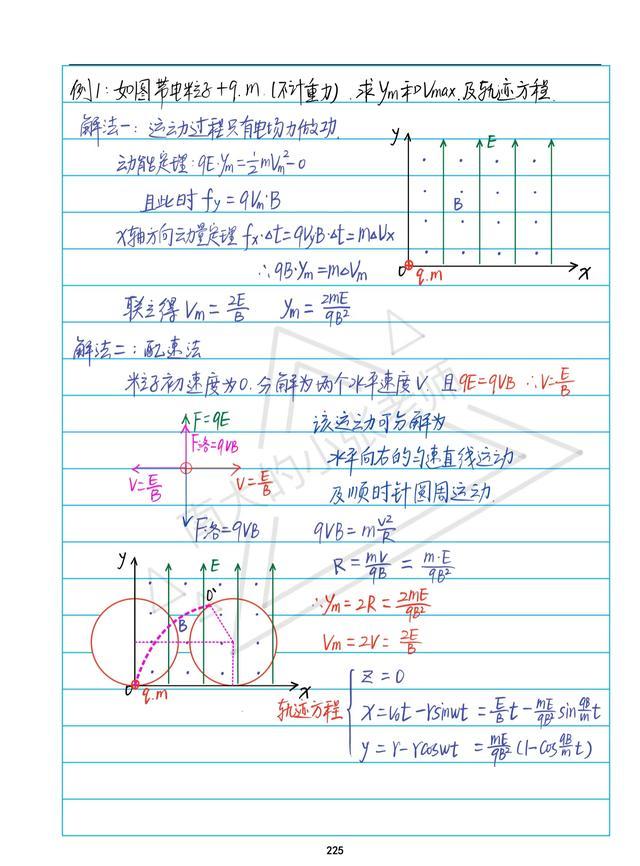 例1:如图带电粒子+q.m.(不计重力).求ym和Vmax.及轨迹方程.
解法一:运动过程只有电场力做功.
动能定理:qE·ym=½mVm²-0
且此时fy=qVm·B
x轴方向动量定理 fx·Δt=qVyB·Δt=mΔVx
∴qB·ym=mΔVm
联立得Vm=2E/B ym=2mE/qB²
y
E
B
O
q.m
x
解法二:配速法
粒子初速度为0.分解为两个水平速度V.且qE=qVB ∴V=E/B
F=qE
F洛=qVB
V=E/B
V=E/B
F洛=qVB
该运动可分解为
水平向右的匀速直线运动
及顺时针圆周运动.
qVB=mv²/R
R=mV/qB=m·E/qB²
∴ym=2R=2mE/qB²
Vm=2V=2E/B
y
E
O'
B
O
q.m
x
轨迹方程
z=0
x=v₀t-rsinwt=E/Bt-mE/qB²sinqB/mt
y=r-rcoswt=mE/qB²(1-cosqB/mt)
南大的小张老师
225